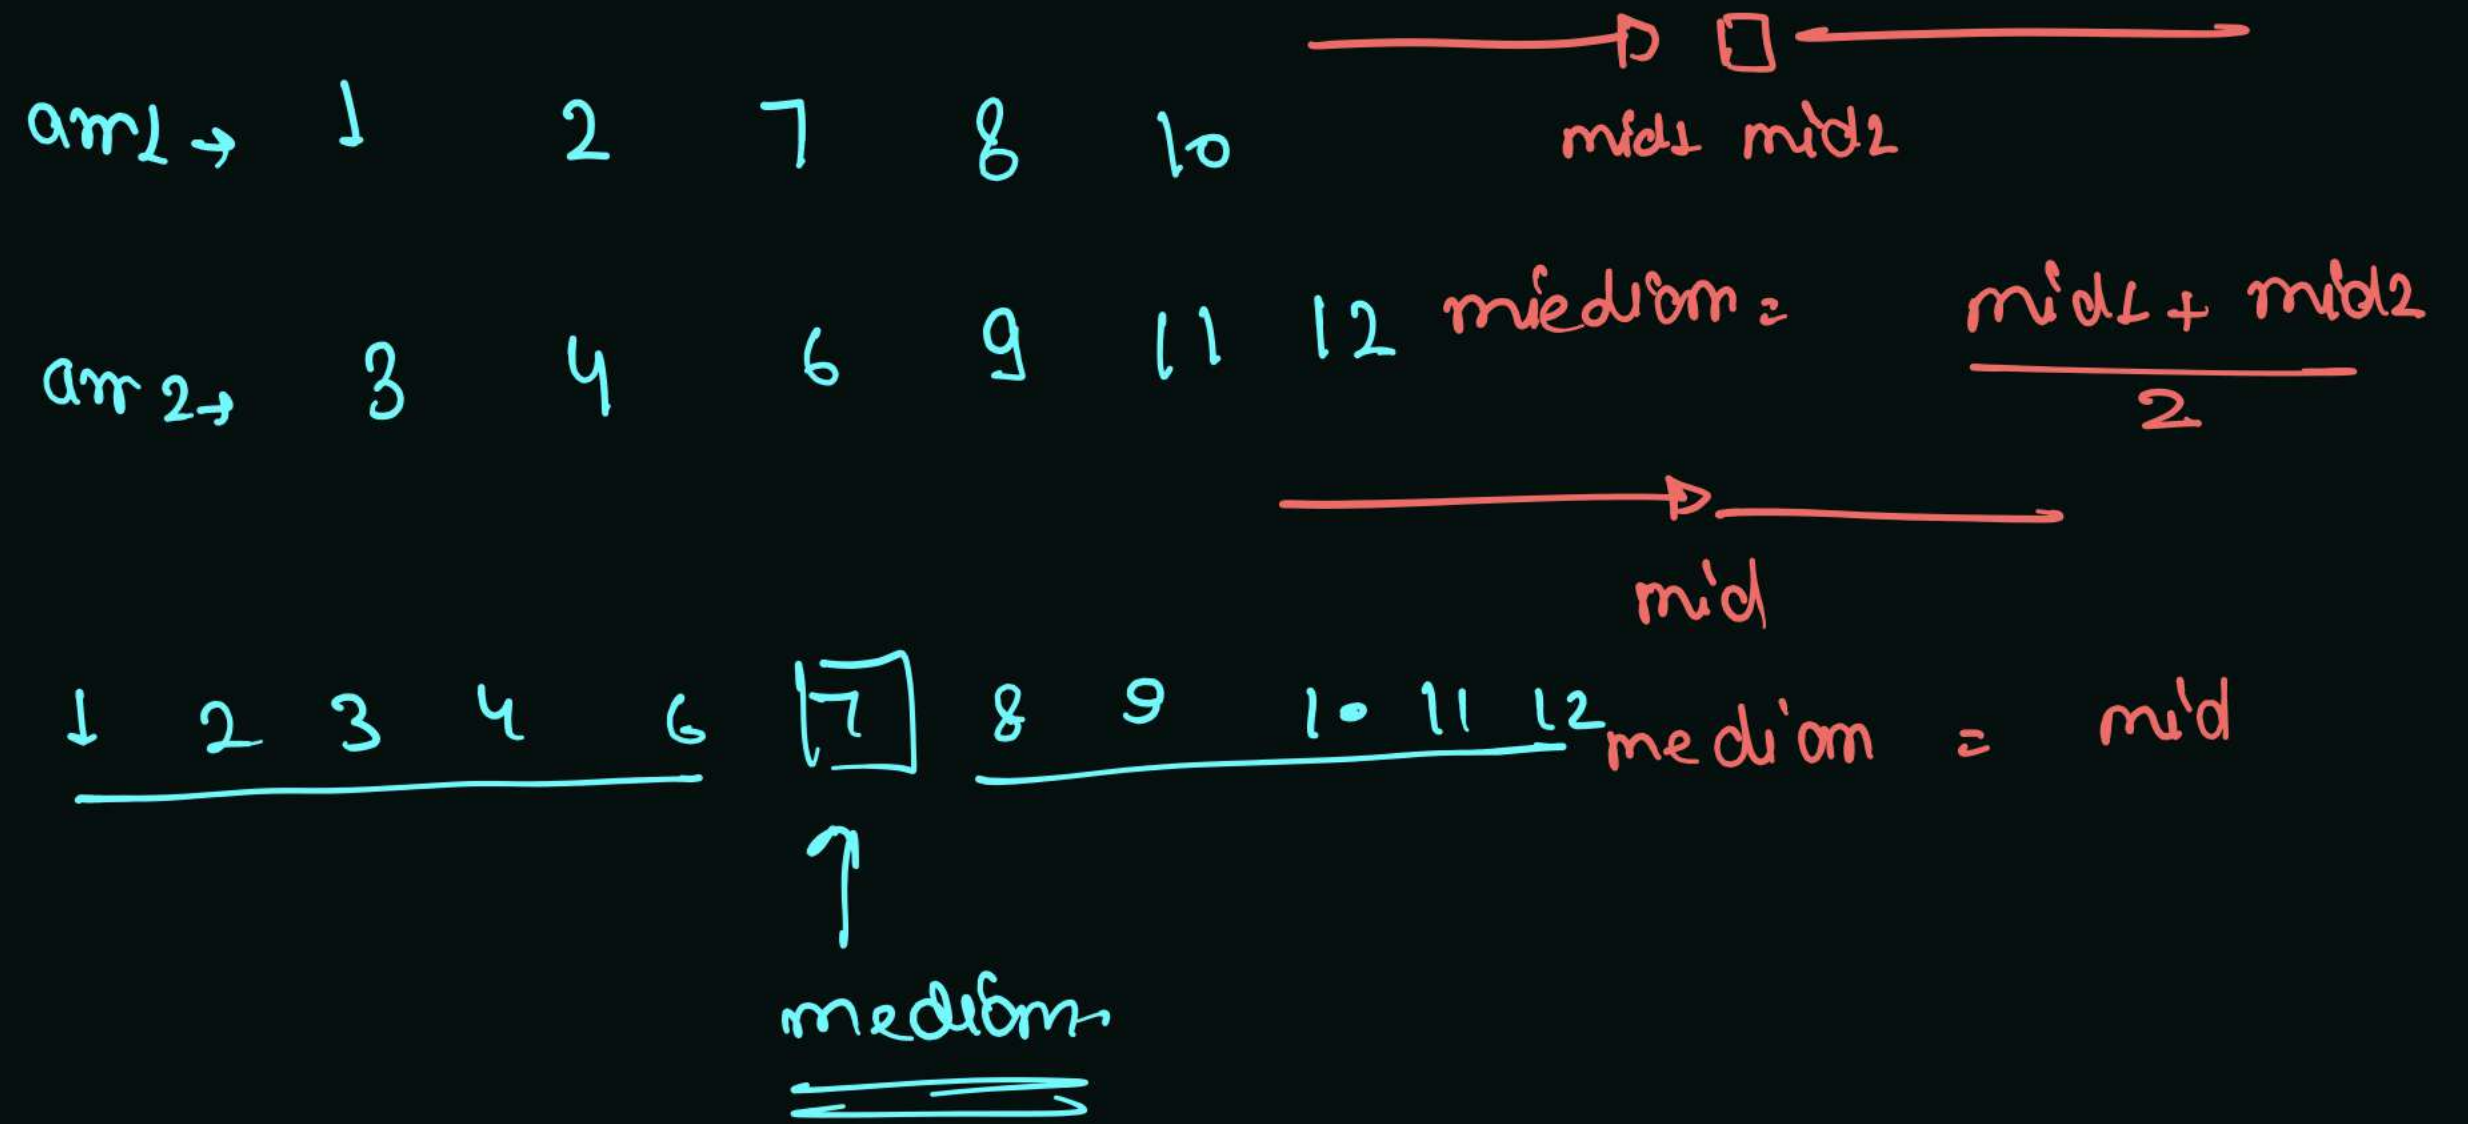 arr1 → 1 2 7 8 10
mid1 mid2
arr2 → 3 4 6 9 11 12
miedian = mid1 + mid2
2
mid
1 2 3 4 6 7 8 9 10 11 12
median = mid
median